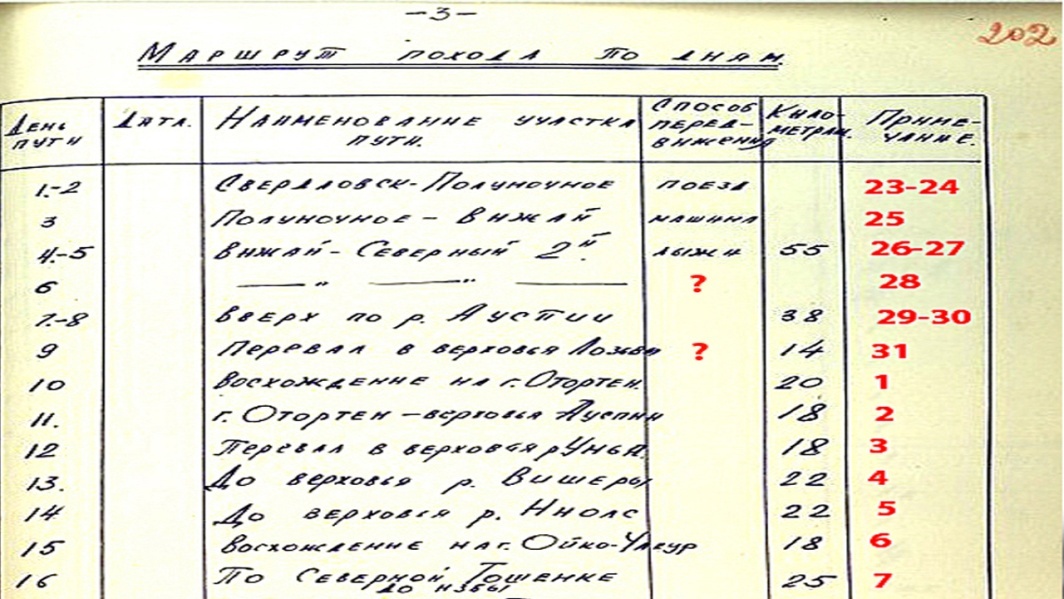 -3-
202
Маршрут похода по дням.
День пути Дата. Наименование участка пути. Способ передвижения Километраж. Примечание.
1.-2 Свердловск-Полуночное поезд 23-24
3 Полуночное - Вижай машина 25
4.-5 Вижай - Северный 2й. лыжи 55 26-27
6 —— " —— " —— ? 28
7.-8 Вверх по р. Аустии 38 29-30
9 Перевал в верховья Лозьвы ? 14 31
10 Восхождение на г. Отортен. 20 1
11. г. Отортен - верховья Ауспии 18 2
12 Перевал в верховья р Унья. 18 3
13. До верховья р. Вишеры 22 4
14 До верховья р. Ниолс 22 5
15 Восхождение на г. Ойко-Чакур 18 6
16 По Северной Тошемке до избы 25 7